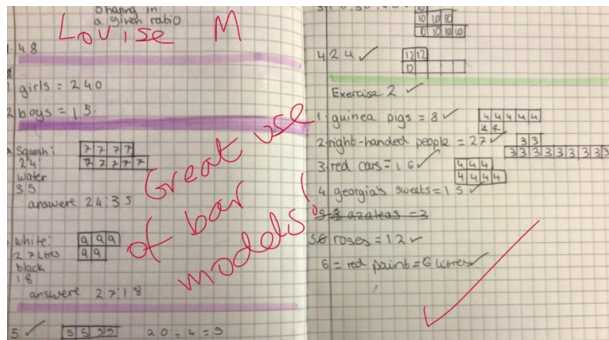 Sharing in
a given ratio
Louise M
1. 48
girls = 240
2 boys = 15
Squash:
24
7 7 7 7
7 7 7 7 7
water
35
answere 24:35
Great use
of bar
models!
white:
27 litres
9 9 9
9 9
black
18
answere 27:18
5 ✓
5 5 5 5
20 ÷ 4 = 5
10 10 10
10 10 10 10
4. 24 ✓
12 12
12
Exercise 2 ✓
1. guinea pigs = 8 ✓
4 4 4 4 4
4 4
2. right-handed people = 27 ✓
3 3
3 3 3 3 3 3 3 3 3
3. red cars = 16 ✓
4 4 4
4 4 4 4
4 georgia's sweets = 15 ✓
5 azaleas = 3
56 roses = 12 ✓
6 = red paint = 6 litres ✓